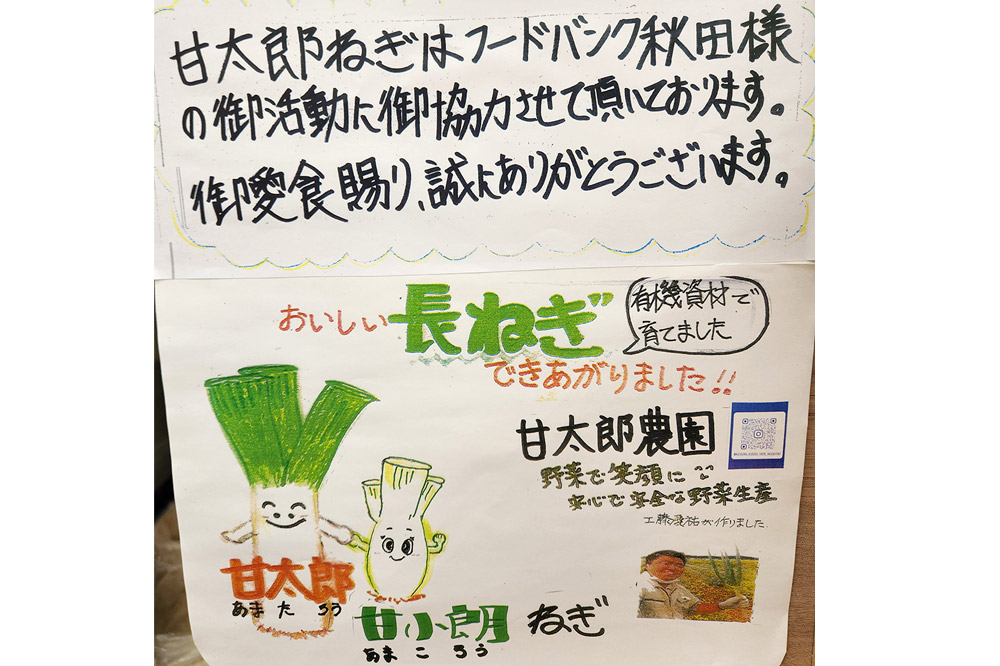 甘太郎ねぎはフードバンク秋田様
の御活動に御協力させて頂いております。
御愛食賜り、誠にありがとうございます。
おいしい長ねぎ
有機資材で
育てました
できあがりました!!
甘太郎農園
野菜で笑顔に
安心で安全な野菜生産
が作りました
甘太郎
あまたろう
甘小朗 ねぎ
あまころう